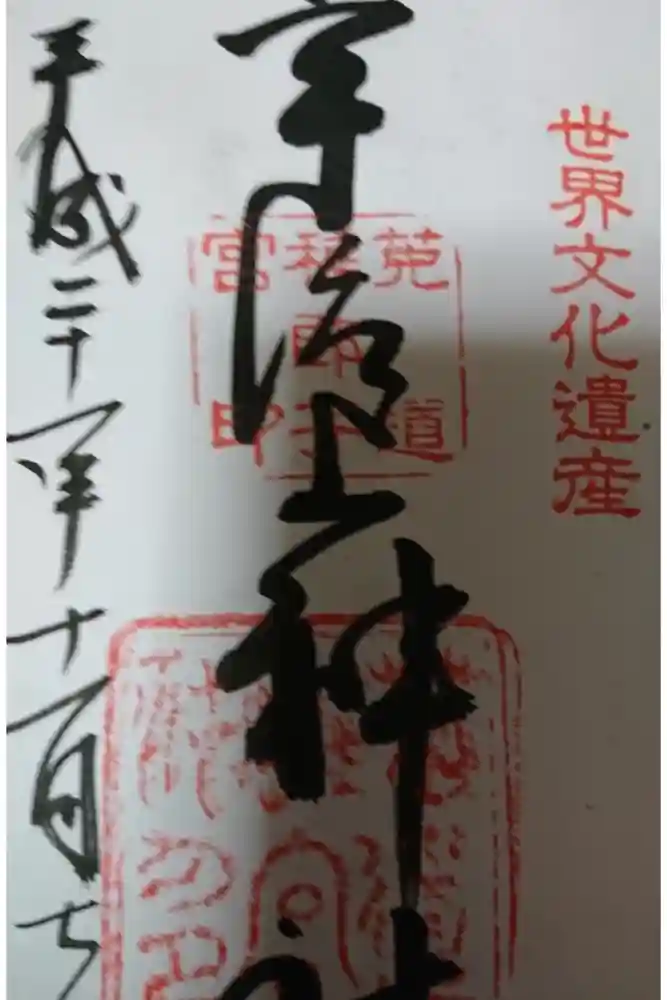 世界文化遺産
宇治上神社
莵道
稚郎子
宮印
平成二十一年十一月七